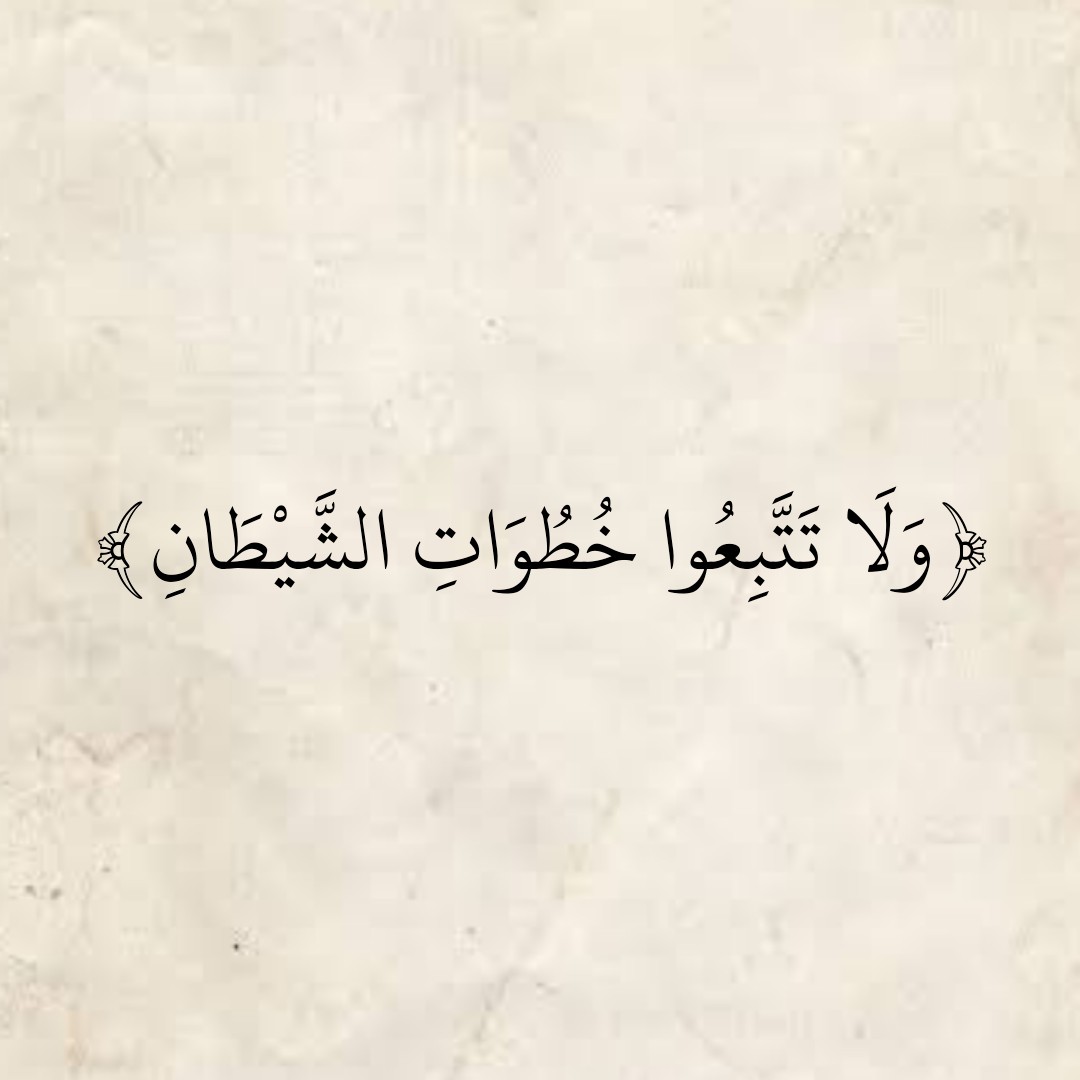 ﴿ وَلَا تَتَّبِعُوا خُطُوَاتِ الشَّيْطَانِ ﴾